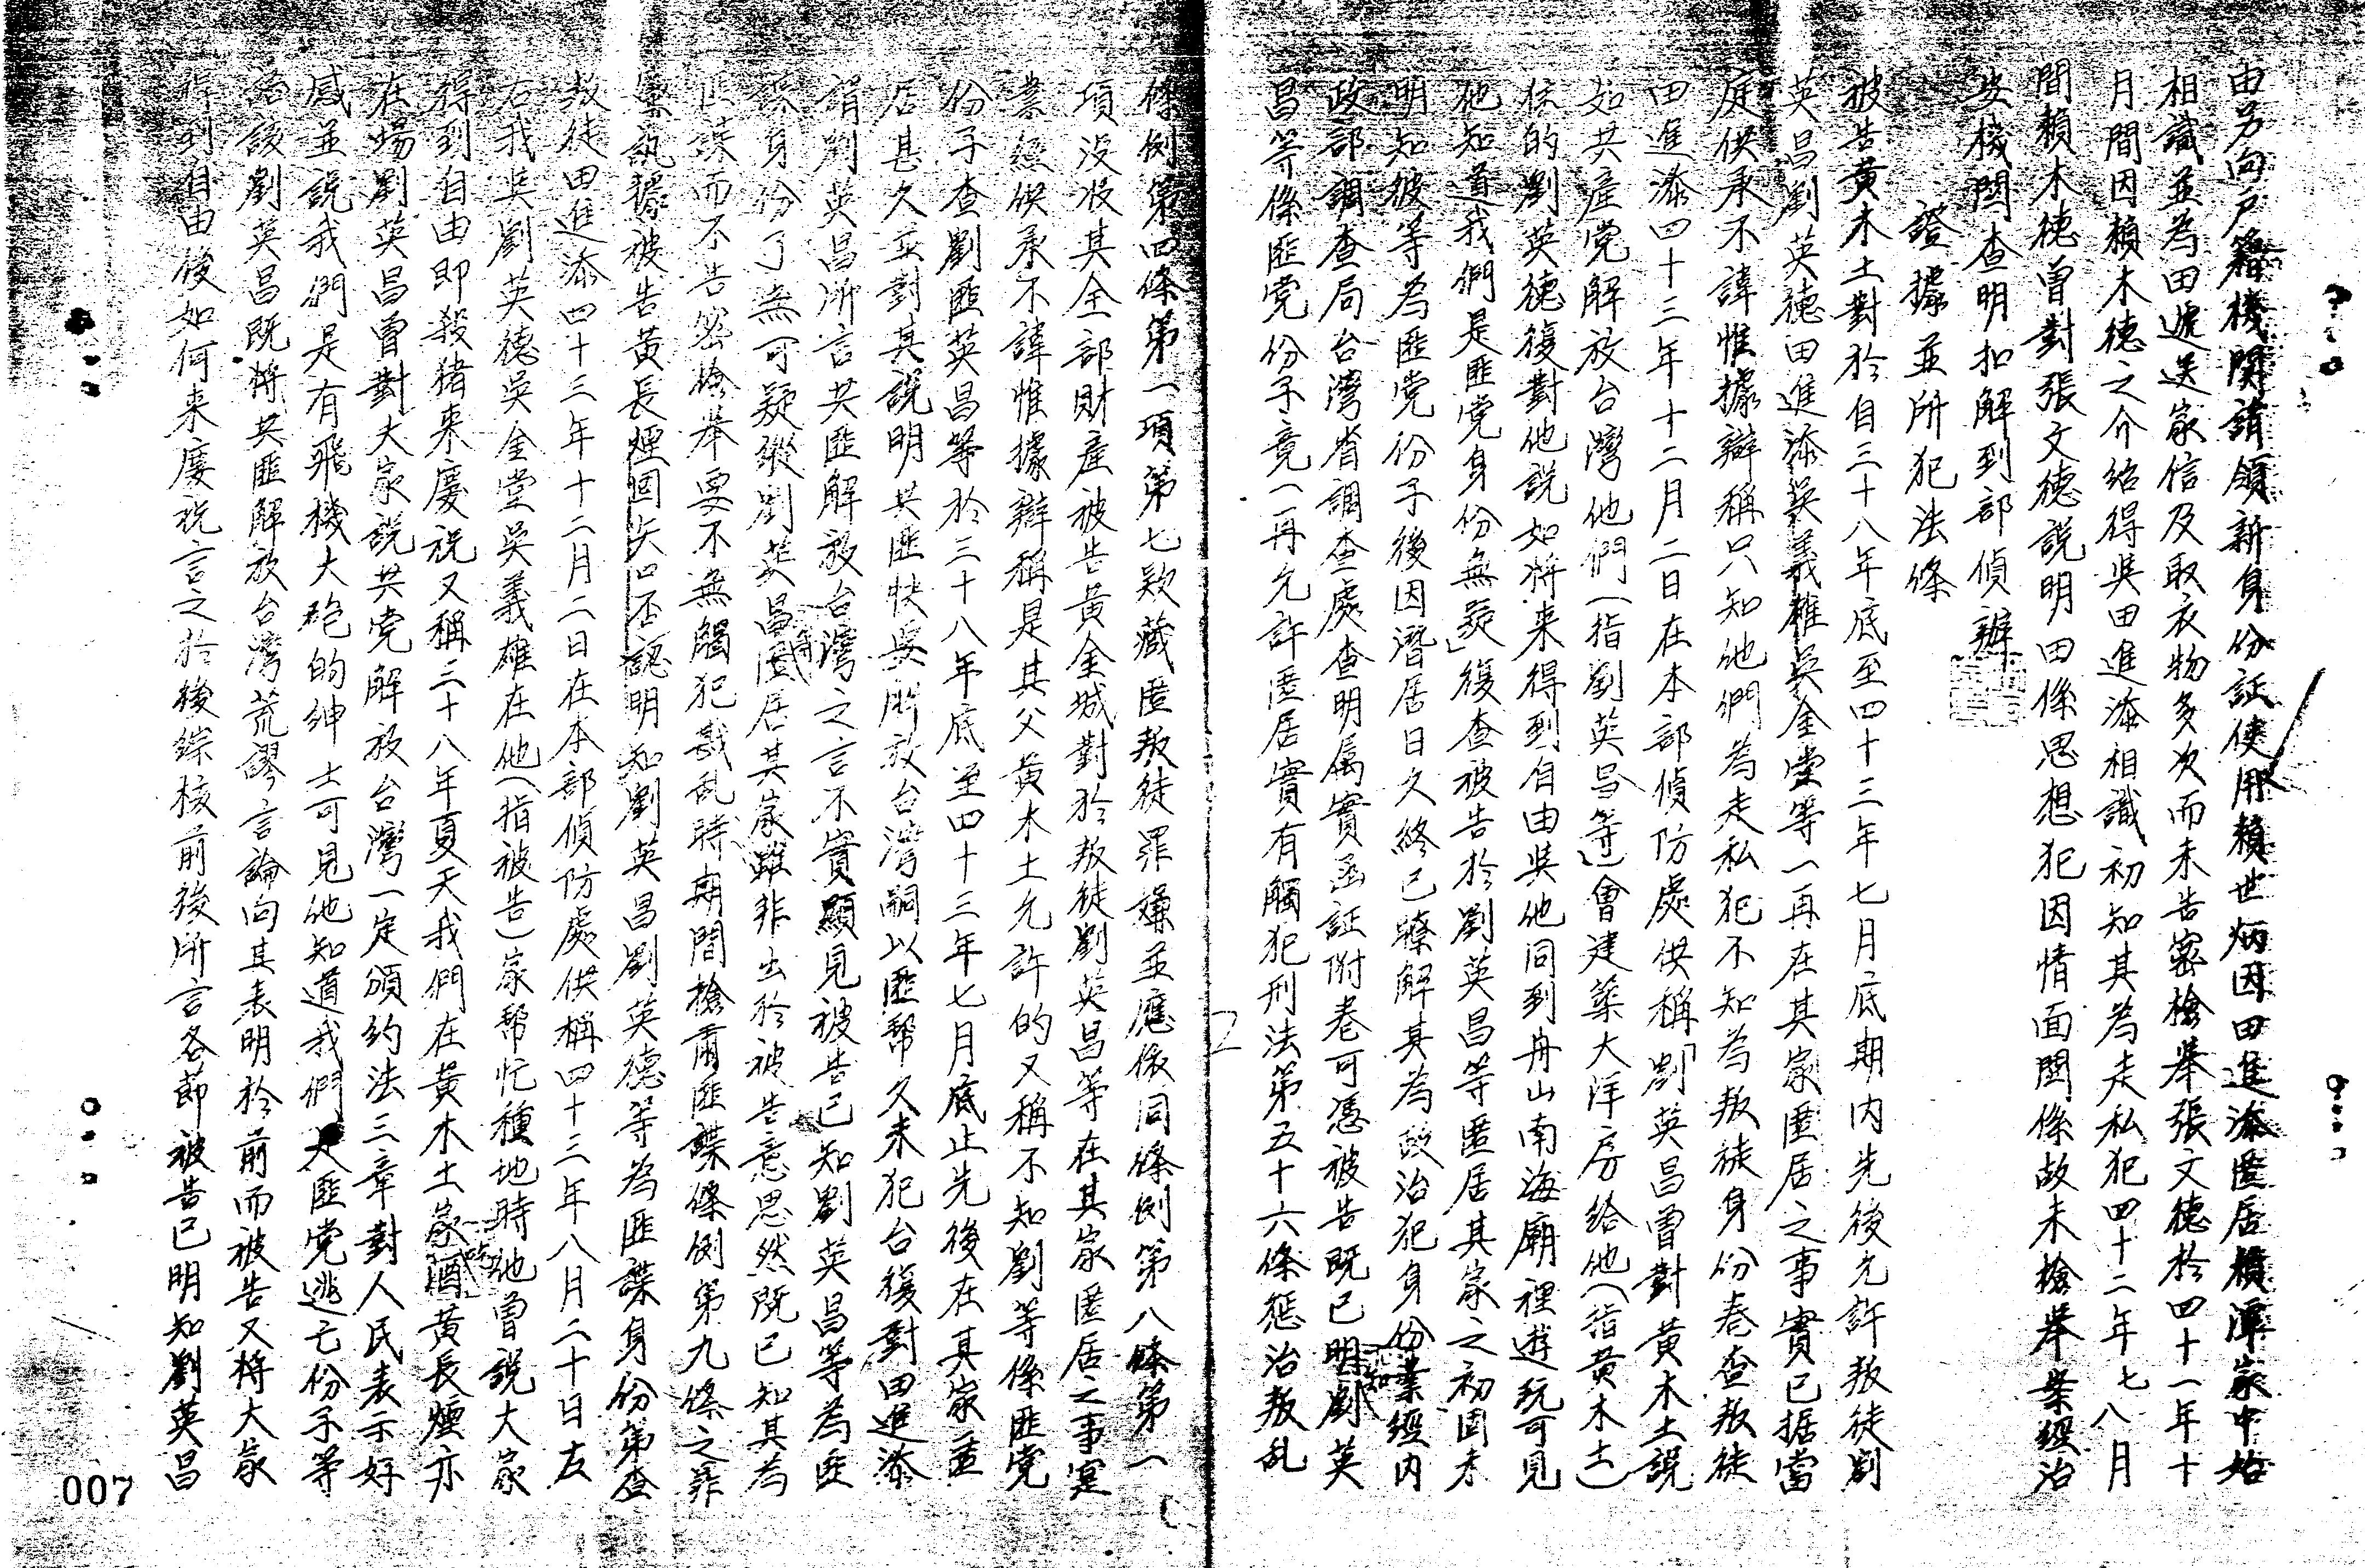 由另向戶籍機関請領新身份証使用賴世炳因田進添匿居橫潭家中始
相識並為田遞送家信及取衣物多次而未告密檢舉張文德於四十一年十
月間因賴木德之介紹得與田進添相識初知其為走私犯四十二年七八月
間賴木德曾對張文德說明田係思想犯因情面関係故未檢舉案經治
安機関查明扣解到部偵辦
證據並所犯法條
被告黃木土對於自三十八年底至四十三年七月底期內先後允許叛徒劉
英昌劉英德田進添吳義雄吳金堂等一再在其家匿居之事實已据當
庭供承不諱惟據辯稱只知他們為走私犯不知為叛徒身份卷查叛徒
田進添四十三年十二月二日在本部偵防處供稱「劉英昌曾對黃木土說
如共產党解放台灣他們(指劉英昌等)會建築大洋房給他(指黃木土)
住的劉英德復對他說如將来得到自由與他同到舟山南海廟裡遊玩可見
他知道我們是匪党身份無疑」復查被告於劉英昌等匿居其家之初固未
明知彼等為匪党份子後因潛居日久終已瞭解其為政治犯身份業經內
政部調查局台灣省調查處查明属實函証附卷可憑被告既已明知劉英
昌等係匪党份子竟一再允許匿居實有觸犯刑法第五十六條懲治叛乱
條例第四條第一項第七款藏匿叛徒罪嫌並應依同條例第八條第一
項沒收其全部財產被告黃金城對於叛徒劉英昌等在其家匿居之事实
業經供承不諱惟據辯稱是其父黃木土允許的又稱不知劉等係匪党
份子查劉匪英昌等於三十八年底至四十三年七月底止先後在其家匿
居甚久並對其說明共匪快要解放台灣嗣以匪幫久未犯台復對田進添
謂劉英昌所言共匪解放台灣之言不實顯見被告已知劉英昌等為匪
諜身份了無可疑縱劉英昌匿居其家雖非出於被告意思然既已知其為
匪諜而不告密檢舉要不無觸犯戡乱時期檢肅匪諜條例第九條之罪
嫌訊據被告黃長煙固矢口否認明知劉英昌劉英德等為匪諜身份第查
叛徒田進添四十三年十二月二日在本部偵防處供稱四十三年八月二十日左
右我與劉英德吳金堂吳義雄在他(指被告)家幫忙種地時他曾說大家
得到自由即殺猪来慶祝又稱三十八年夏天我們在黃木土家時黃長煙亦
在場劉英昌曾對大家說共党解放台灣一定頒約法三章對人民表示好
感並說我們是有飛機大砲的紳士可見他知道我們是匪党逃亡份子等
語該劉英昌既將共匪解放台灣荒謬言論向其表明於前而被告又將大家
得到自由後如何来慶祝言之於後綜核前後所言各節被告已明知劉英昌
2
007